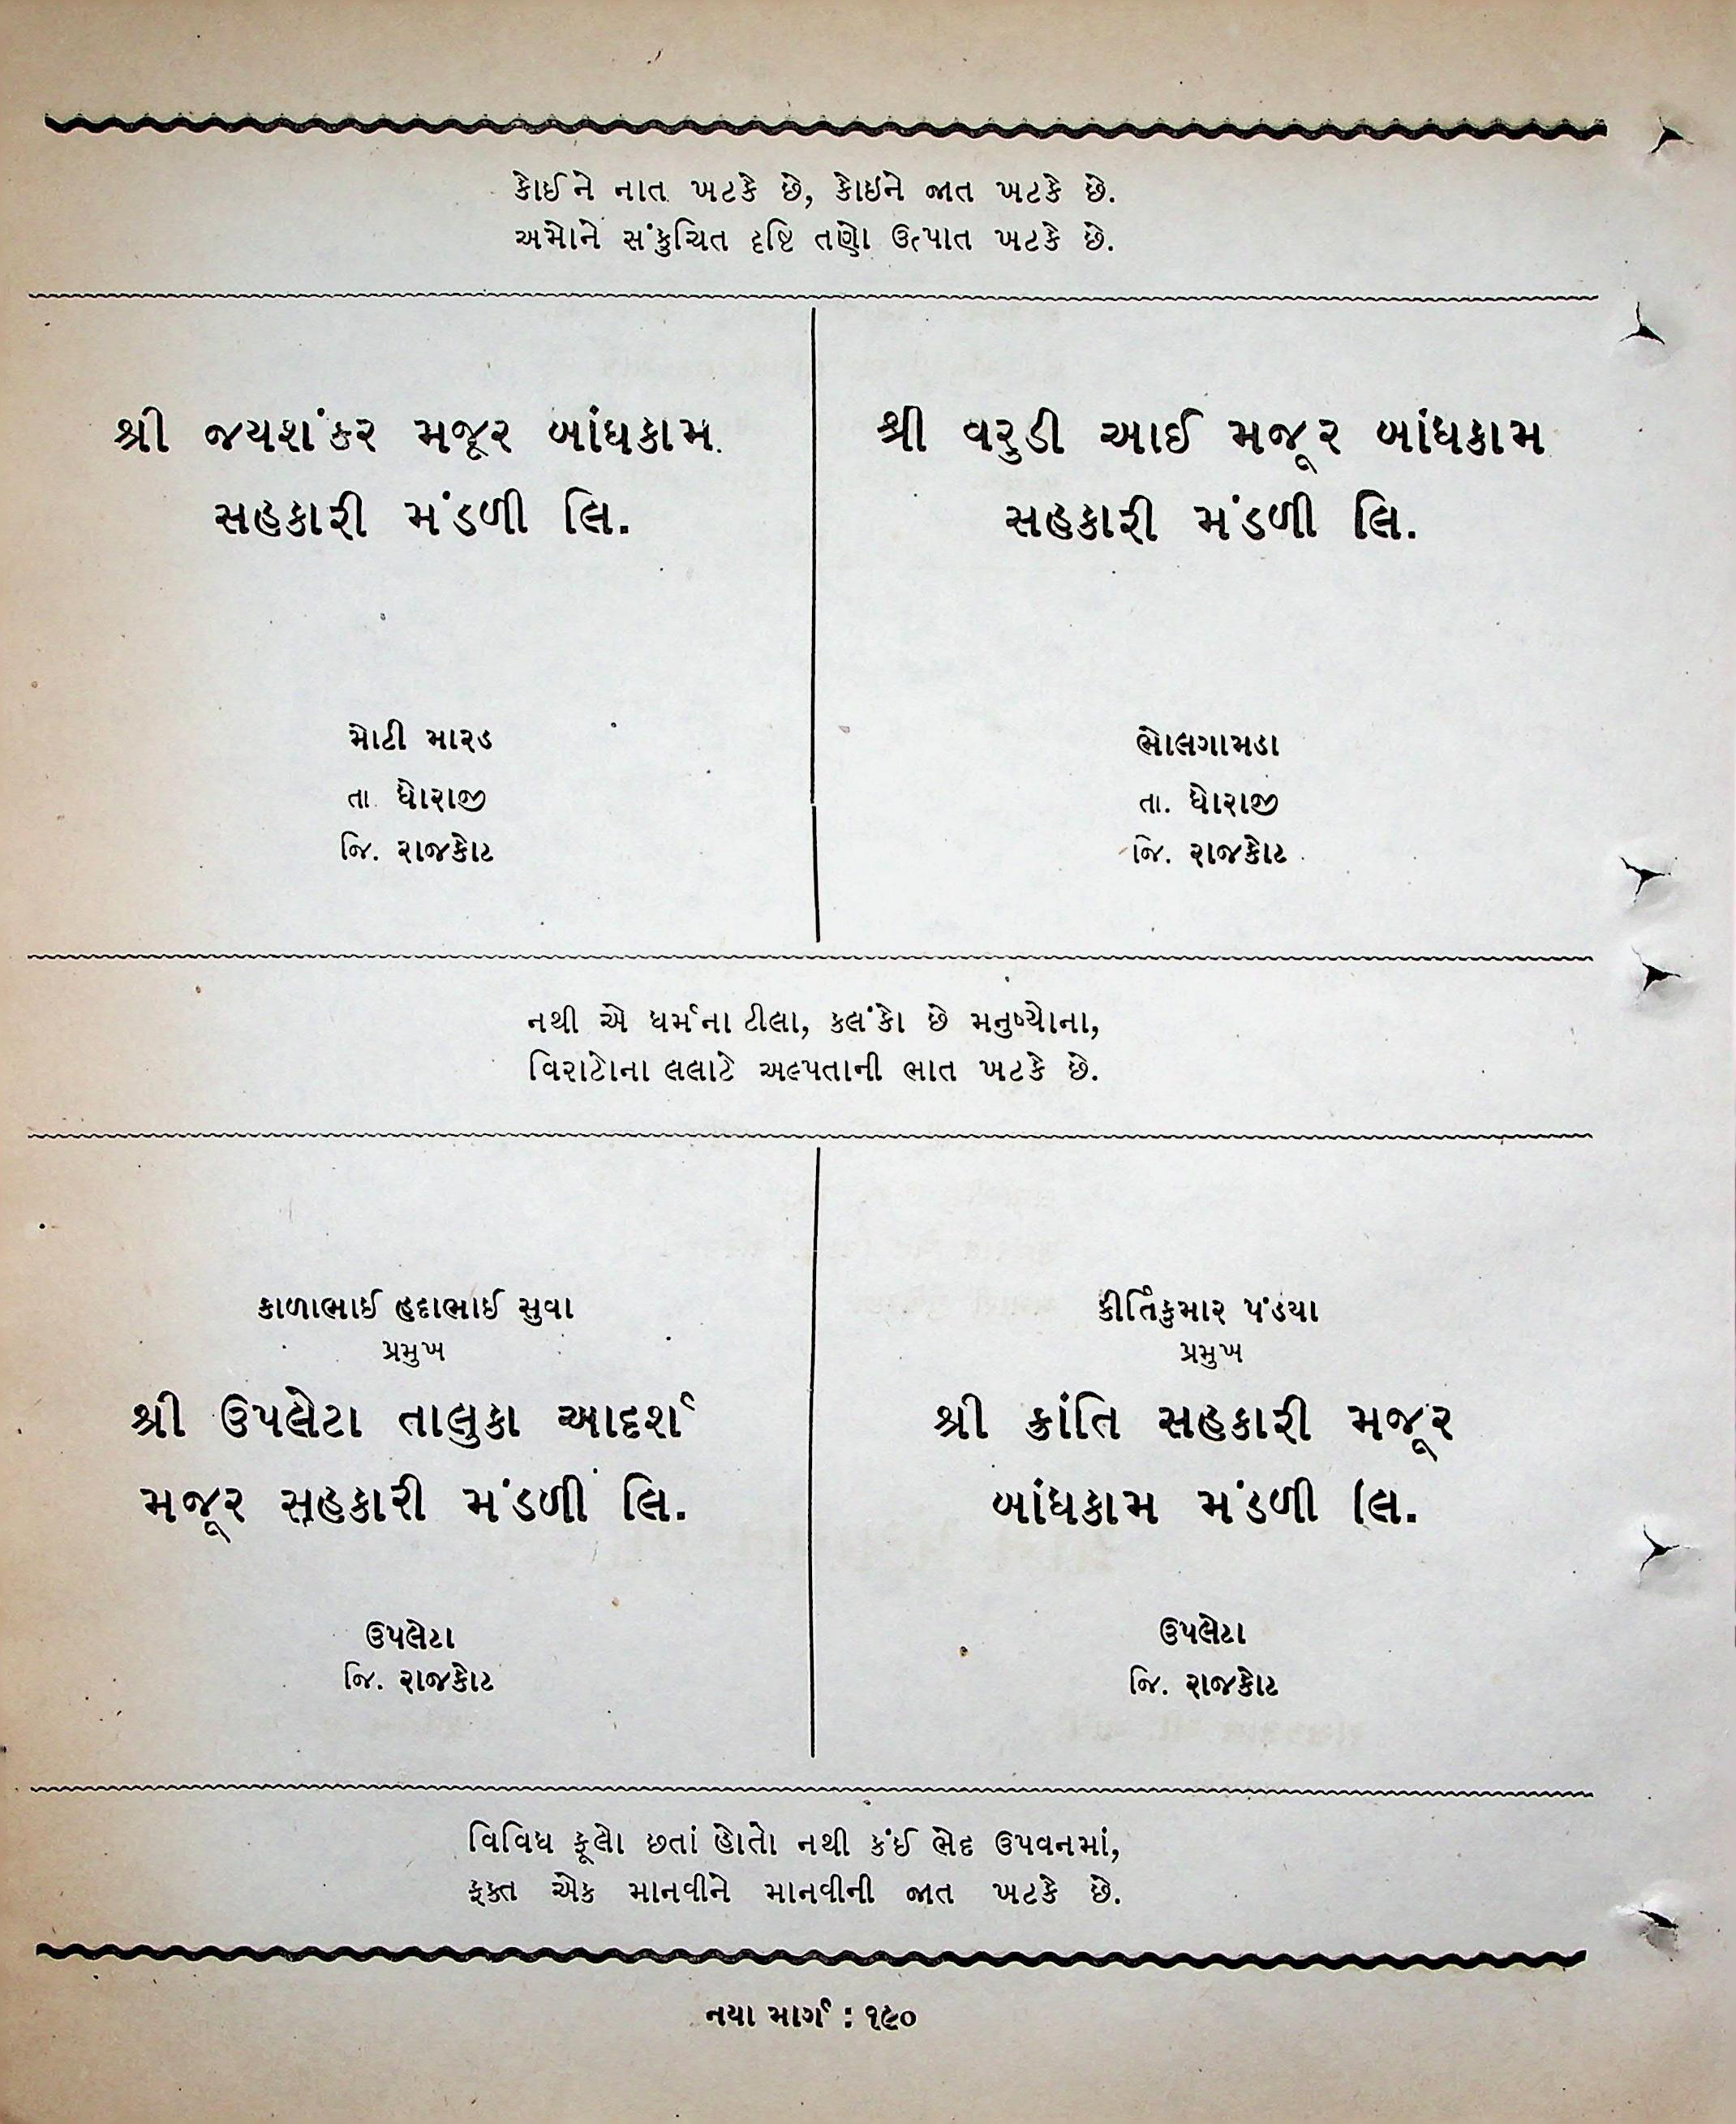 કોઈને નાત ખટકે છે, કોઇને જાત ખટકે છે.
અમોને સંકુચિત દૃષ્ટિ તણો ઉત્પાત ખટકે છે.
શ્રી જયશંકર મજૂર બાંધકામ
સહકારી મંડળી લિ.
મોટી મારડ
તા. ધોરાજી
જિ. રાજકોટ
શ્રી વરુડી આઈ મજૂર બાંધકામ
સહકારી મંડળી લિ.
ભોલગામડા
તા. ધોરાજી
જિ. રાજકોટ
નથી એ ધર્મના ટીલા, કલંકો છે મનુષ્યોના,
વિરાટોના લલાટે અલ્પતાની ભાત ખટકે છે.
કાળાભાઈ હદાભાઈ સુવા
પ્રમુખ
શ્રી ઉપલેટા તાલુકા આદર્શ
મજૂર સહકારી મંડળી લિ.
ઉપલેટા
જિ. રાજકોટ
કીર્તિકુમાર પંડયા
પ્રમુખ
શ્રી ક્રાંતિ સહકારી મજૂર
બાંધકામ મંડળી લિ.
ઉપલેટા
જિ. રાજકોટ
વિવિધ ફૂલો છતાં હોતો નથી કંઈ ભેદ ઉપવનમાં,
ફક્ત એક માનવીને માનવીની જાત ખટકે છે.
નયા માર્ગ : ૧૯૦